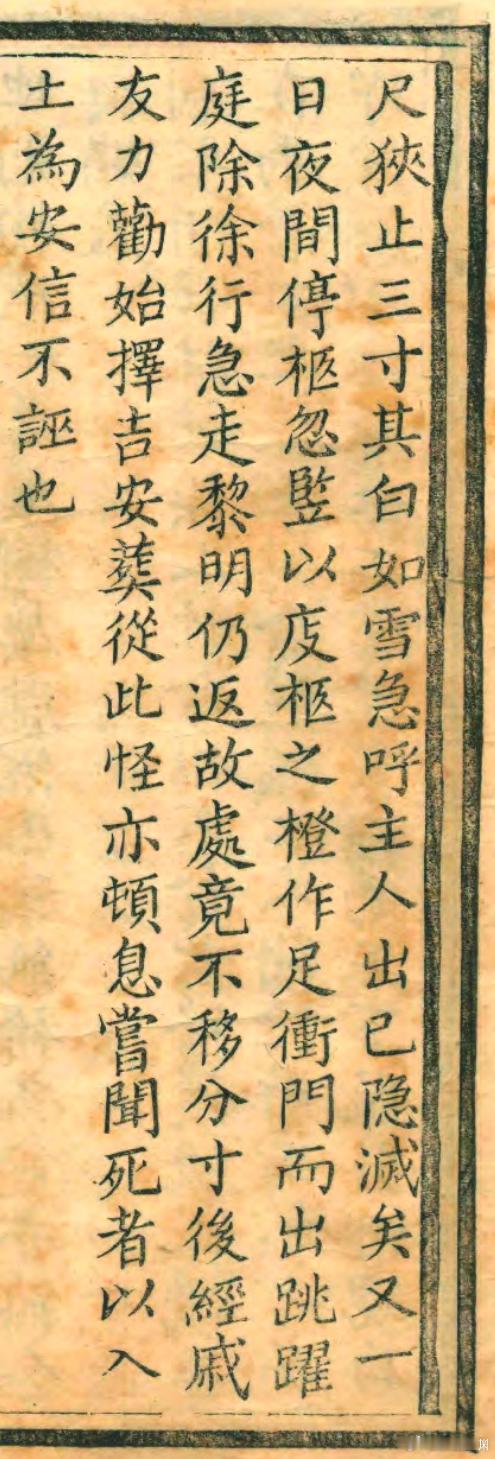 尺狹止三寸其白如雪急呼主人出已隐滅矣又一
日夜間停柩忽豎以庋柩之橙作足衝門而出跳躍
庭除徐行急走黎明仍返故處竟不移分寸後經戚
友力勸始擇吉安葬從此怪亦頓息嘗聞死者以入
土為安信不誣也